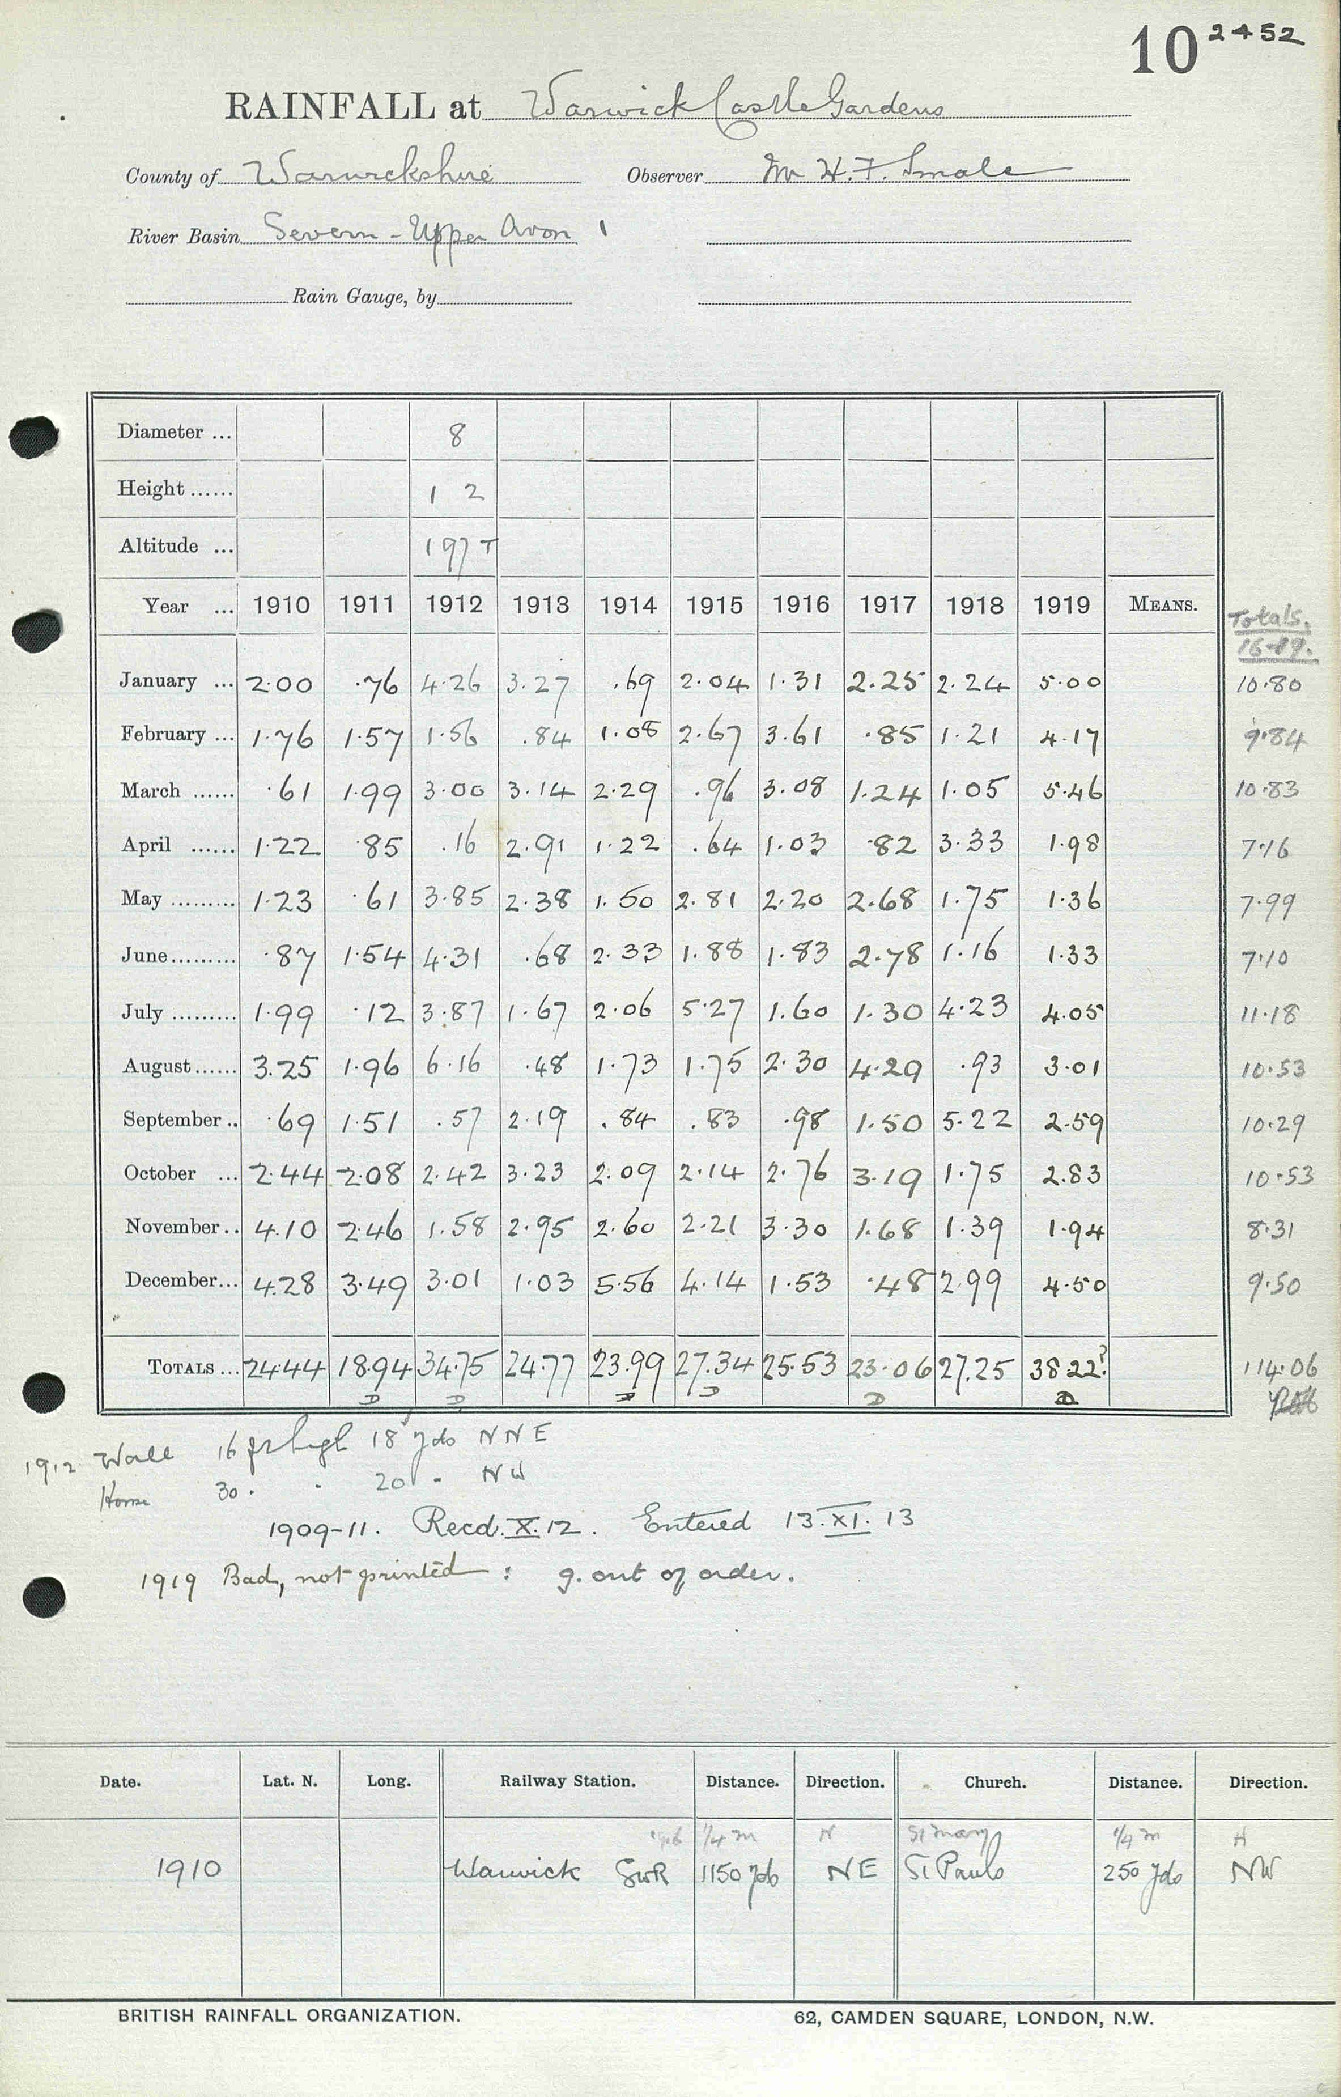 10 2452
RAINFALL at Warwick Castle Gardens
County of Warwickshire Observer Mr H. F. Smale
River Basin Severn - Upper Avon 1
Rain Gauge, by
Diameter ... 8
Height ...... 1 2
Altitude ... 197 T
Year ... 1910 1911 1912 1913 1914 1915 1916 1917 1918 1919 MEANS. Totals. 16-19.
January ... 2.00 .76 4.26 3.27 .69 2.04 1.31 2.25 2.24 5.00 10.80
February ... 1.76 1.57 1.56 .84 1.08 2.67 3.61 .85 1.21 4.17 9.84
March ...... .61 1.99 3.00 3.14 2.29 .96 3.08 1.24 1.05 5.46 10.83
April ...... 1.22 .85 .16 2.91 1.22 .64 1.03 .82 3.33 1.98 7.16
May ......... 1.23 .61 3.85 2.38 1.50 2.81 2.20 2.68 1.75 1.36 7.99
June......... .87 1.54 4.31 .68 2.33 1.88 1.83 2.78 1.16 1.33 7.10
July ......... 1.99 .12 3.87 1.67 2.06 5.27 1.60 1.30 4.23 4.05 11.18
August...... 3.25 1.96 6.16 .48 1.73 1.75 2.30 4.29 .93 3.01 10.53
September .. .69 1.51 .57 2.19 .84 .83 .98 1.50 5.22 2.59 10.29
October ... 2.44 2.08 2.42 3.23 2.09 2.14 2.76 3.19 1.75 2.83 10.53
November .. 4.10 2.46 1.58 2.95 2.60 2.21 3.30 1.68 1.39 1.94 8.31
December... 4.28 3.49 3.01 1.03 5.56 4.14 1.53 .48 2.99 4.50 9.50
TOTALS ... 24.44 18.94 34.75 24.77 23.99 27.34 25.53 23.06 27.25 38.22? 114.06
D D D D D D
1912 Wall 16 ft high 18 yds NNE
House 30 . . 20 " NW
1909-11. Recd. X. 12. Entered 13. XI. 13
1919 Bad, not printed : g. out of order.
Date. Lat. N. Long. Railway Station. Distance. Direction. Church. Distance. Direction.
1/4 m N St Mary 1/4 m N
1910 Warwick GWR 1150 yds NE St Pauls 250 yds NW
BRITISH RAINFALL ORGANIZATION. 62, CAMDEN SQUARE, LONDON, N.W.